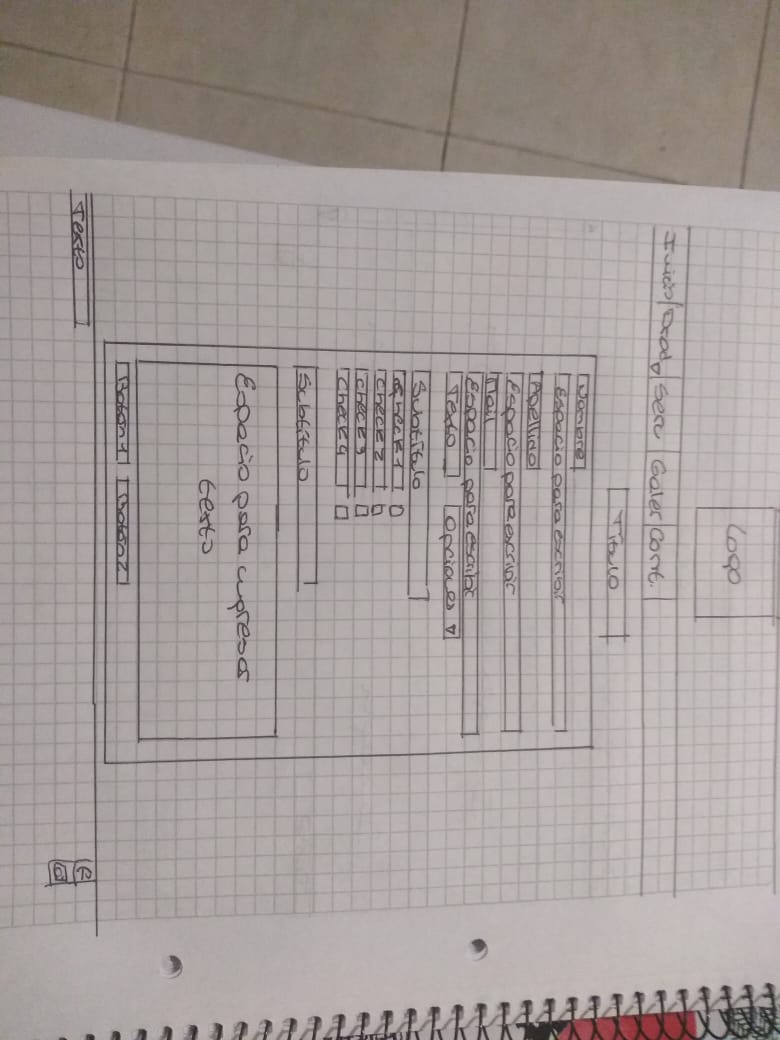 Logo
Inicio/Prod▽ Serv Galer/Cont.
Título
Nombre
Espacio para escribir
Apellido
Espacio para escribir
Mail
Espacio para escribir
Texto Opciones ▽
Subtítulo
Check 1
Check 2
Check 3
Check 4
Subtítulo
Espacio para ingresar
texto
Boton 1 Boton 2
Texto